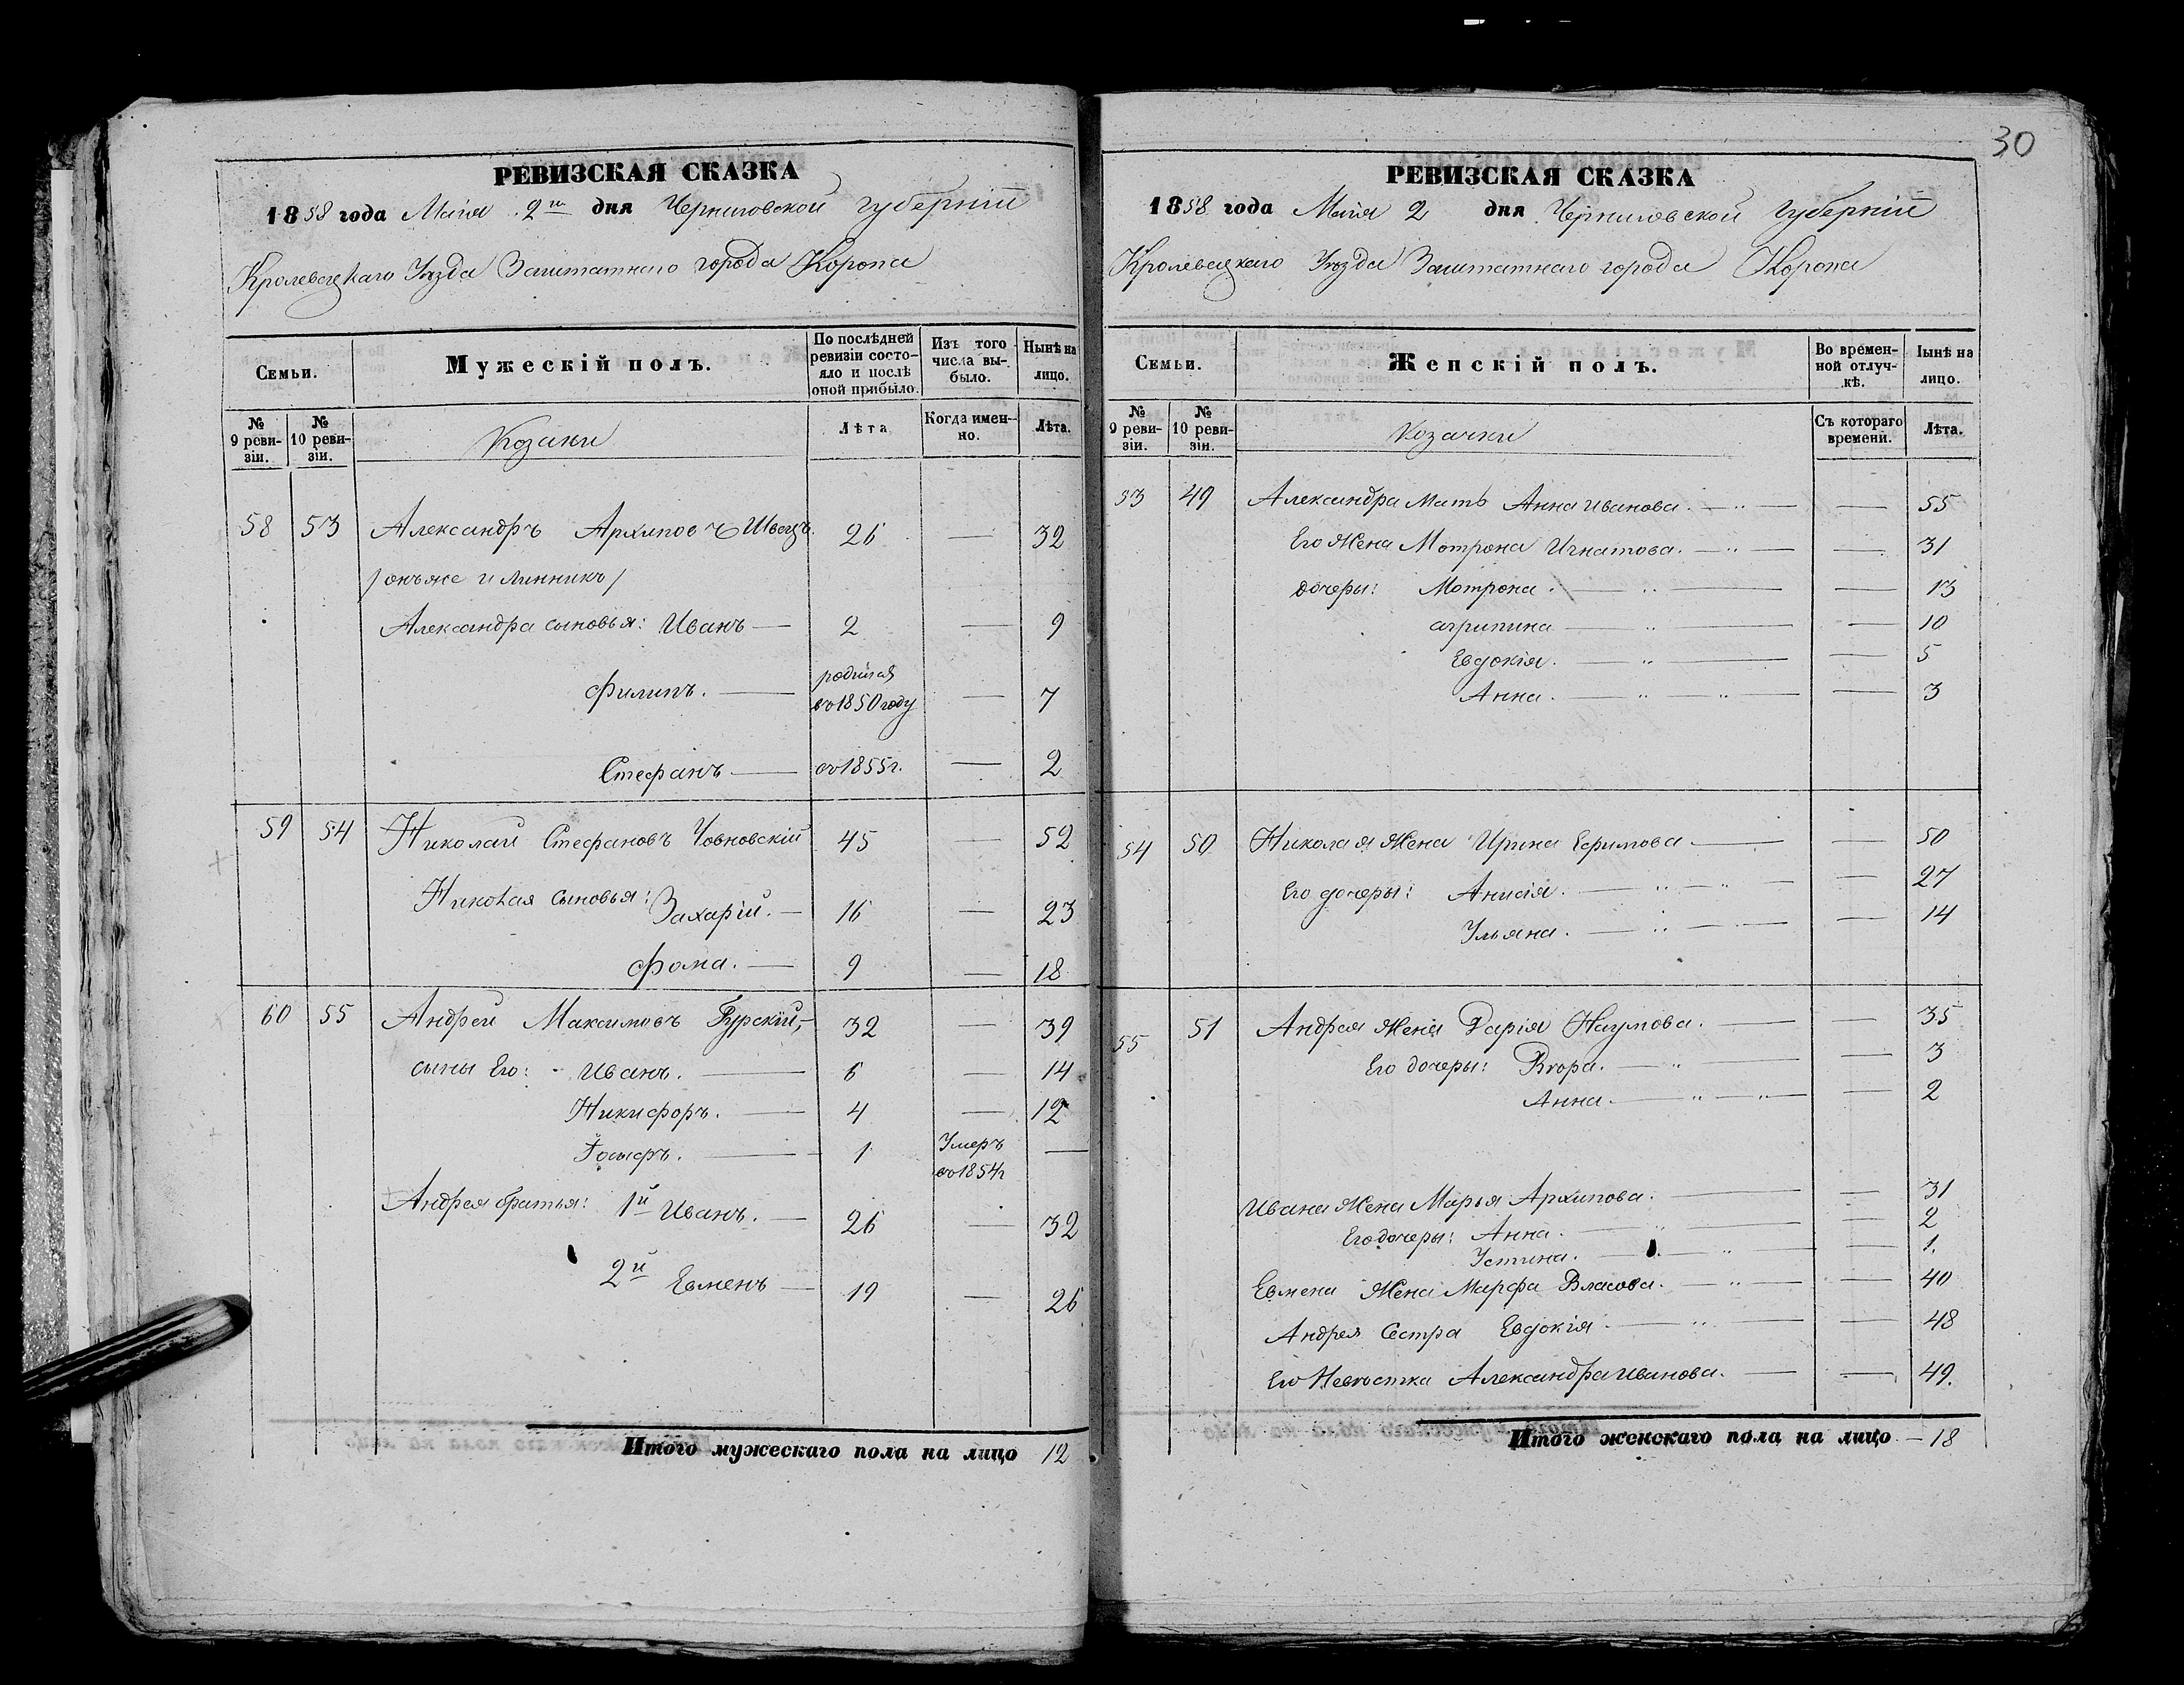 30
РЕВИЗСКАЯ СКАЗКА
1858 года Маия 2го дня Черниговской губерніи
Кролевецкаго Уезда Заштатнаго города Коропа
Семьи.
Мужескій полъ.
По послѣдней ревизіи состо-яло и послѣ оной прибыло.
Изъ того числа вы-было.
Нынѣ на лицо.
№ 9 реви-зіи.
№ 10 реви-зіи.
Козаки
Лѣта
Когда имен-но.
Лѣта.
58 53 Александръ Архиповъ Швецъ. 26 — 32
/онъ же и Линникъ/
Александра сыновья: Иванъ — 2 — 9
Филипъ. — родился во 1850 году — 7
Стефанъ — во 1855г. — 2
59 54 Николай Стефановъ Човновскій 45 — 52
Николая сыновья: Захарій. — 16 — 23
Фома. — 9 — 18
60 55 Андрей Максимовъ Гурскій, — 32 — 39
сыны Его: Иванъ. — 6 — 14
Никифоръ. — 4 — 12
Іосифъ. — 1 Умеръ во 1854г —
Андрея братья: 1й Иванъ. — 26 — 32
2й Евменъ — 19 — 26
Итого мужескаго пола на лицо 12
РЕВИЗСКАЯ СКАЗКА
1858 года Маия 2 дня Черниговской губерніи
Кролевецкаго Уезда Заштатнаго города Коропа
Семьи.
Женскій полъ.
Во времен-ной отлуч-кѣ.
Нынѣ на лицо.
№ 9 реви-зіи.
№ 10 реви-зіи.
Козачки
Съ котораго времени.
Лѣта.
53 49 Александра Мать Анна Иванова. — — 55
Его Жена Мотрона Игнатова. — — 31
дочеры: Мотрона. — — 13
агрипина — — 10
Евдокія. — — 5
Анна. — — 3
54 50 Николая Жена Ирина Ефимова — — 50
Его дочеры: Анисія. — — 27
Ульяна. — — 14
55 51 Андрея Жена Дарія Наумова. — — 35
Его дочеры: — 3
Анна. — — 2
Ивана Жена Марья Архипова. — — 31
Его дочеры: Анна. — — 2
Устина. — — 1.
Евмена Жена Марфа Власова. — — 40
Андрея Сестра Евдокія — — 48
Его Невѣстка Александра Иванова. — — 49.
Итого женскаго пола на лицо — 18